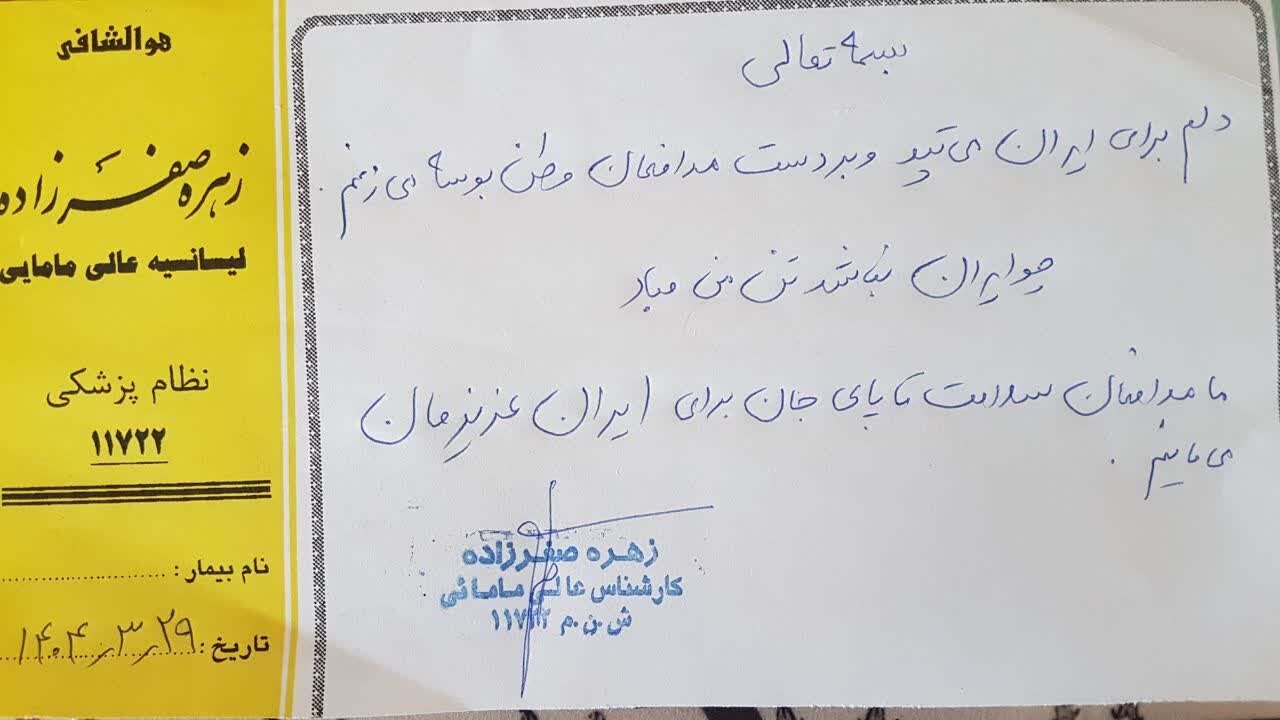 هوالشافی
زهره صفرزاده
لیسانسیه عالی مامایی
نظام پزشکی
۱۱۷۲۲
نام بیمار :
تاریخ : ۱۴۰۴٫۳٫۲۹
بسمه تعالی
دلم برای ایران می تپد و بر دست مدافعان وطن بوسه می زنم .
چو ایران نباشد تن من مباد
ما مدافعان سلامت تا پای جان برای ایران عزیزمان
می مانیم .
زهره صفرزاده
کارشناس عالی مامائی
ش.ن.م ۱۱۷۲۲